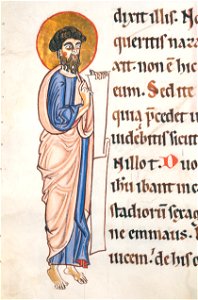 dixit illis. No
queritis naza
non ē hic
eum. Sed ite
quia p̄cedet u
uidebitis sicut
N illo t. Duo
ibant in ca
stadiorū sexag
ne emmaus.
uicem. de his o